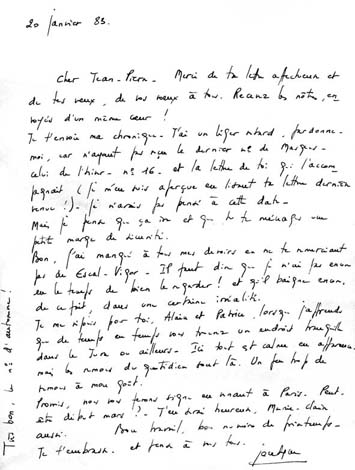 20 janvier 83.
Cher Jean-Pierre - Merci de ta lettre affectueuse et
de tes vœux, de vos vœux à tous. Recevez les nôtres, en
voyés d'un même cœur !
Je t'envoie ma chronique - J'ai un léger retard - pardonne-
moi, car n'ayant pas reçu le dernier n° de Masques -
celui de l'hiver - n° 16 - et la lettre de toi qui l'accom
pagnait ( je m'en suis aperçue en lisant ta lettre dernière
venue !) - je n'avais pas pensé à cette date -
Mais je pense que ça ira et que tu te ménages une
petite marge de sécurité.
Bon, j'ai manqué à tous mes devoirs en ne te remerciant
pas de Escal-Vigor - Il faut dire que je n'ai pas encore
eu le temps de bien le regarder ! et qu'il baigne encore,
de ce fait, dans une certaine irréalité.
Je me réjouis pour toi, Alain et Patrice, lorsque j'apprends
que de temps en temps vous trouvez un endroit tranquille
dans le Jura ou ailleurs - Ici tout est calme en apparence
mais les remous du quotidien sont là. Un peu trop de
remous à mon goût.
Promis, nous vous ferons signe en venant à Paris. Peut-
être début mars ! - J'en serai heureux, Marie-Claire
aussi. Bon travail, bon numéro de printemps -
Je t'embrasse. et pense à vous tous.
Très bon, le n° d'automne !